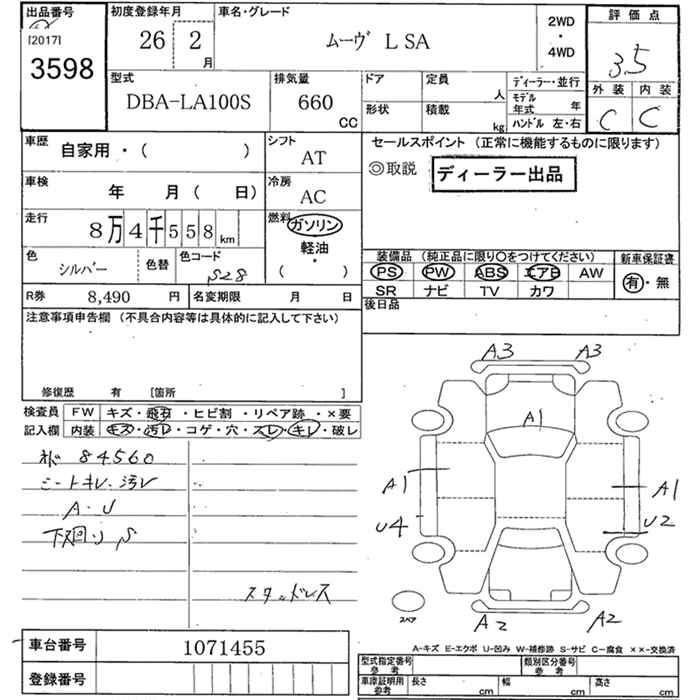 出品番号 初度登録年月 車名・グレード 2WD 評価点
[2017] 26 2 月 ムーヴ L SA ・ 3.5
3598 4WD
型式 排気量 ドア 定員 人 ディーラー・並行 外装 内装
DBA-LA100S 660 CC 形状 積載 kg モデル年式 年 C C
ハンドル 左・右
車歴 自家用・( ) シフト AT セールスポイント (正常に機能するものに限ります)
◎取説 ディーラー出品
車検 年 月( 日) 冷房 AC
走行 8万4千558km 燃料 ガソリン
軽油
・
( )
色 シルバー 色替 色コード S28 装備品 (純正品に限り○をつけてください) 新車保証書
PS PW ABS エアB AW 有・無
SR ナビ TV カワ
R券 8,490 円 名変期限 月 日 後日品
注意事項申告欄 (不具合内容等は具体的に記入して下さい)
修復歴 有 [箇所 ]
検査員 FW キズ・飛石・ヒビ割・リペア跡・×要
記入欄 内装 キズ・汚レ・コゲ・穴・スレ・キレ・破レ
84560
シートキレ・汚レ
A・U
下回リ S
スタッドレス
A3 A3
A1
A1 A1
U4 U2
スペア A2 A2
車台番号 1071455
登録番号
A-キズ E-エクボ U-凹み W-補修跡 S-サビ C-腐食 ××-交換済
型式指定番号 参考 類別区分番号
車庫証明用 参考 長さ cm 幅 cm 高さ cm